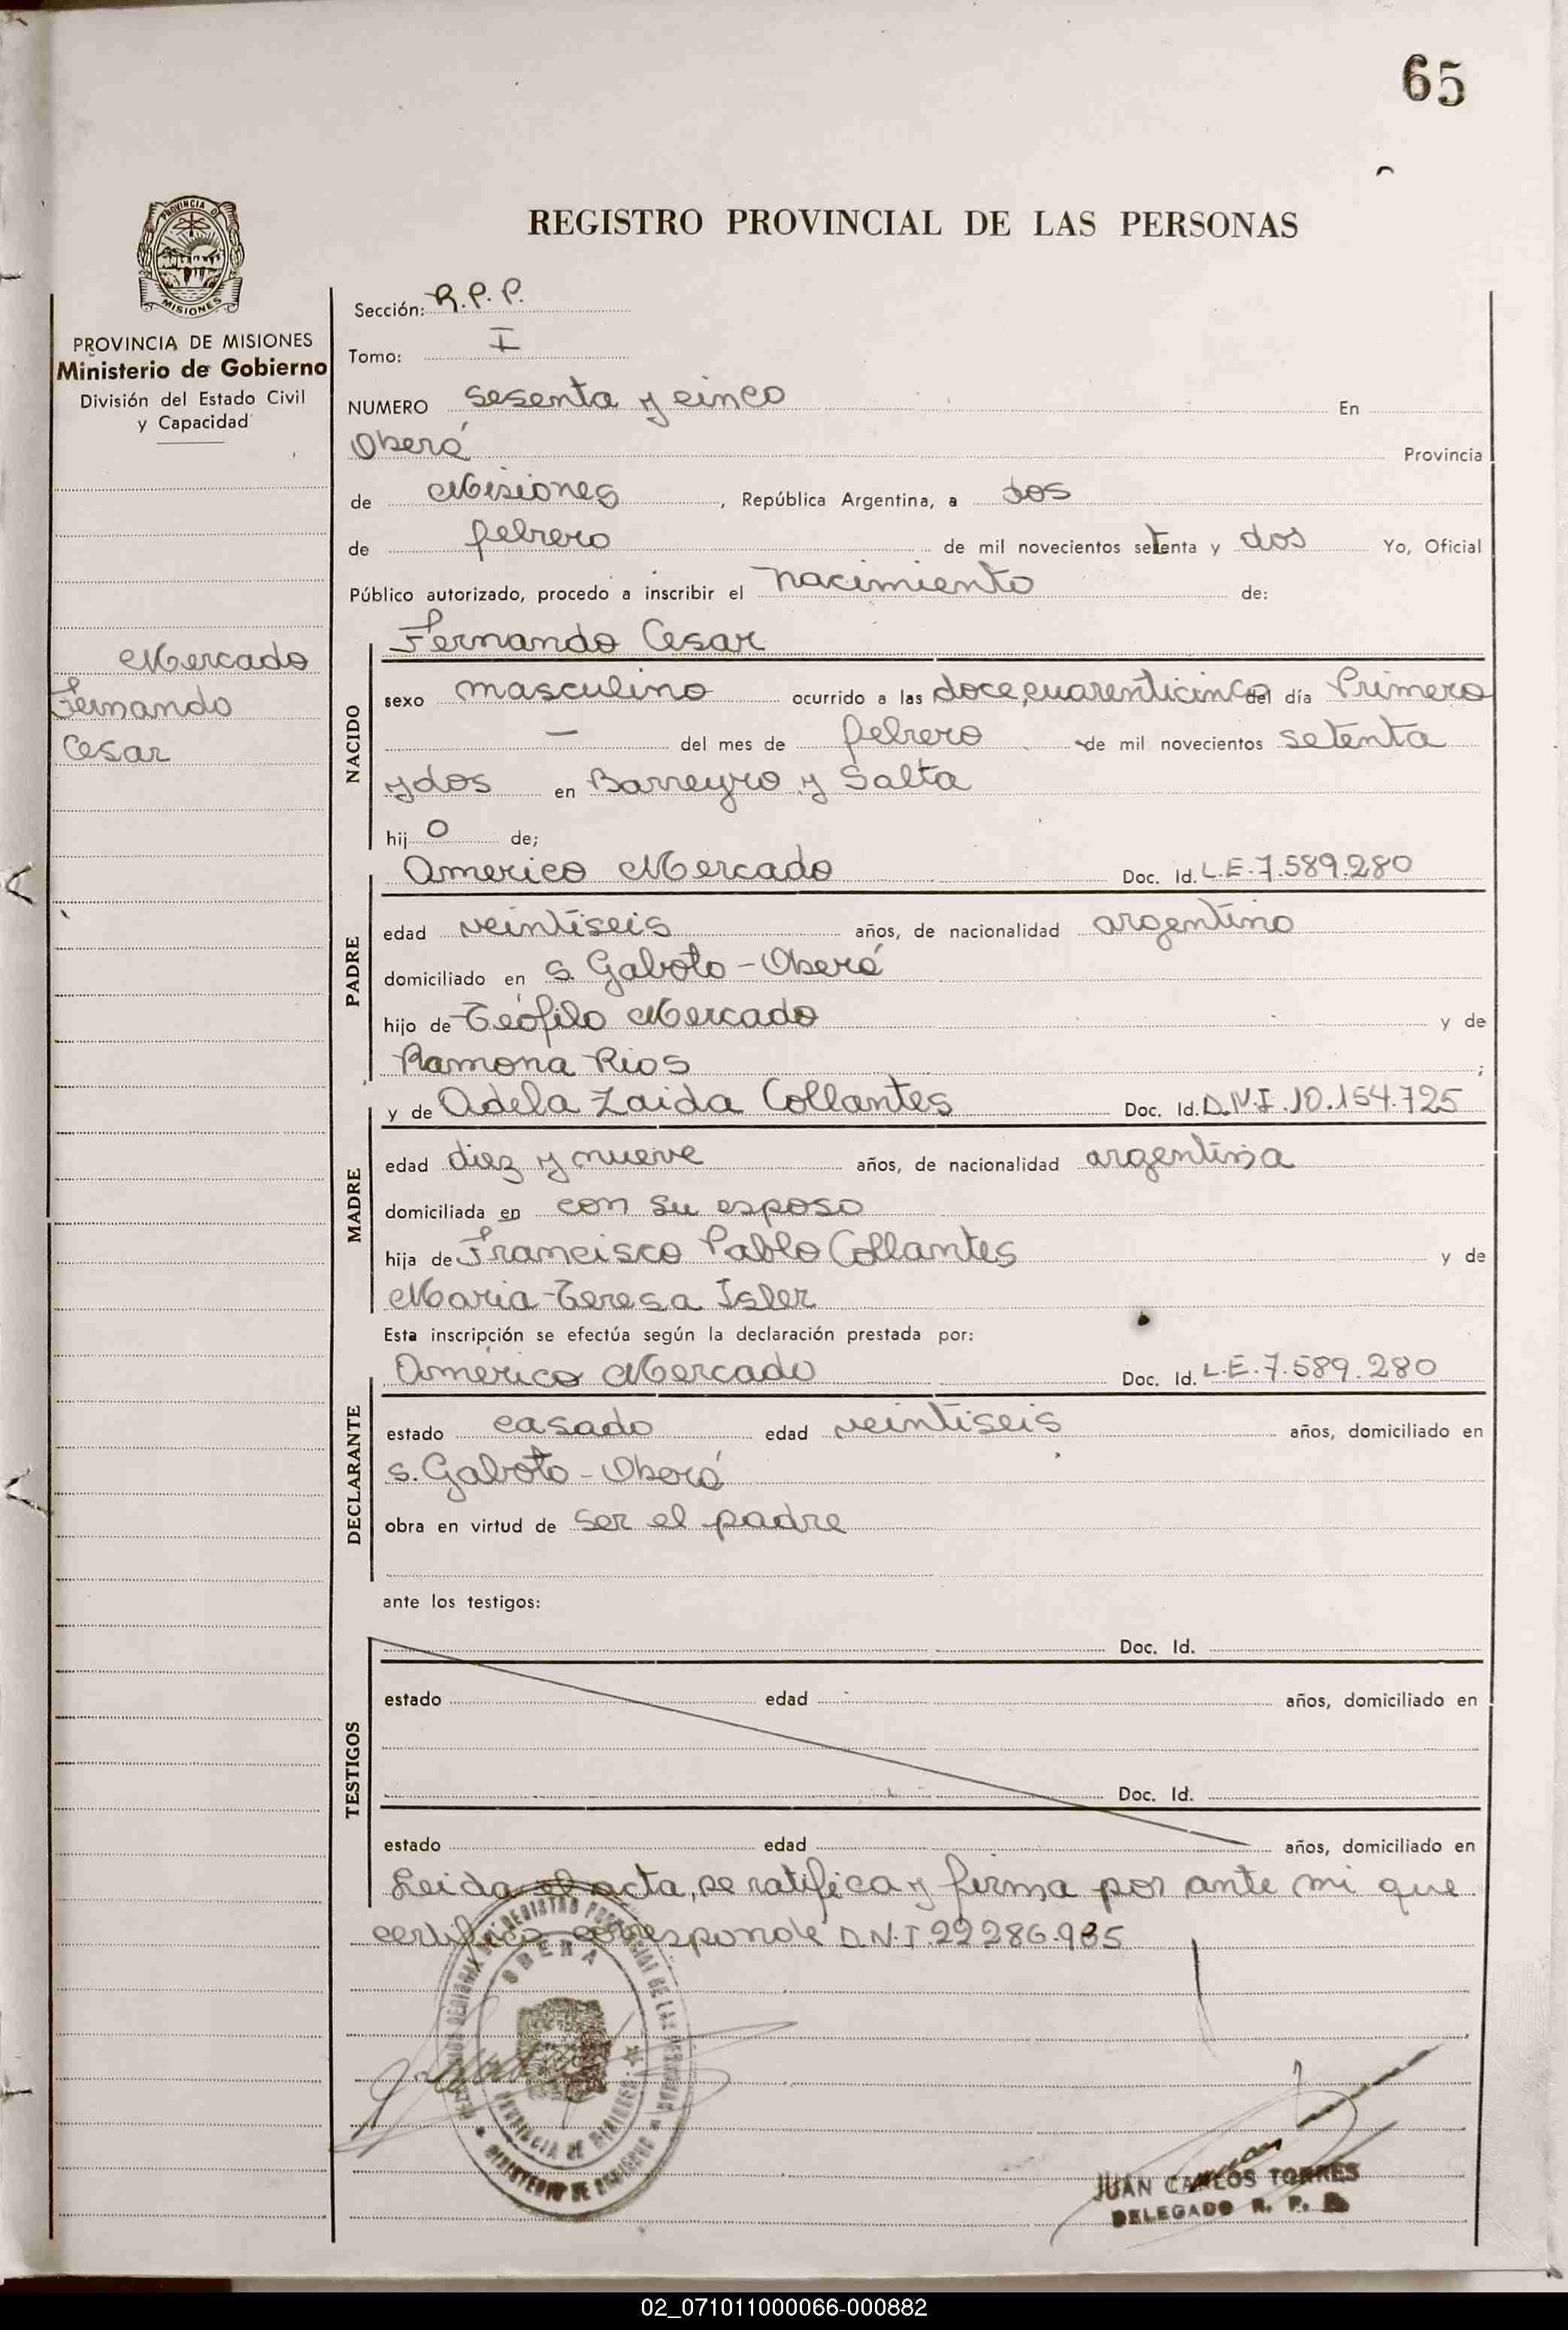 65
REGISTRO PROVINCIAL DE LAS PERSONAS
PROVINCIA D
MISIONES
PROVINCIA DE MISIONES
Ministerio de Gobierno
División del Estado Civil
y Capacidad
Mercado
Fernando
Cesar
Sección: R.P.P.
Tomo: I
NUMERO sesenta y cinco En
Oberá Provincia
de Misiones, República Argentina, a dos
de febrero de mil novecientos setenta y dos Yo, Oficial
Público autorizado, procedo a inscribir el nacimiento de:
NACIDO
Fernando Cesar
sexo masculino ocurrido a las doce, cuarenticinco del día Primero
— del mes de febrero de mil novecientos setenta
y dos en Barreyro y Salta
hij o de;
PADRE
Americo Mercado Doc. Id. L.E. 7.589.280
edad veintiseis años, de nacionalidad argentino
domiciliado en S. Gaboto - Oberá
hijo de Teófilo Mercado y de
Ramona Rios ;
MADRE
y de Adela Zaida Collantes Doc. Id. D.N.I. 10.154.725
edad diez y nueve años, de nacionalidad argentina
domiciliada en con su esposo
hija de Francisco Pablo Collantes y de
Maria Teresa Isler
Esta inscripción se efectúa según la declaración prestada por:
DECLARANTE
Américo Mercado Doc. Id. L.E. 7.589.280
estado casado edad veintiseis años, domiciliado en
S. Gaboto - Oberá
obra en virtud de ser el padre
ante los testigos:
TESTIGOS
Doc. Id.
estado edad años, domiciliado en
Doc. Id.
estado edad años, domiciliado en
Leida el acta, se ratifica y firma por ante mi que
certifico corresponde D.N.I. 22.286.985
OBERA
PROVINCIA DE MISIONES
MINISTERIO DE GOBIERNO
JUAN CARLOS TORRES
DELEGADO R. P. P.
02_071011000066-000882